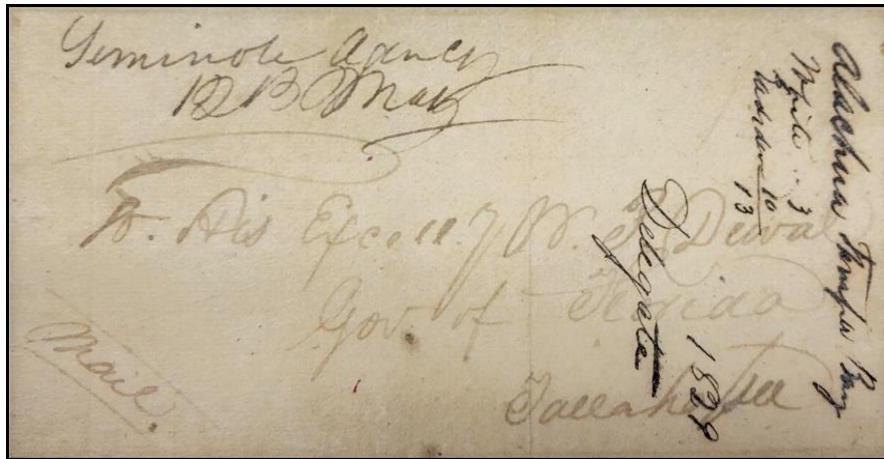 Seminole Agency
12 B May
To. His Excell.y W. P. Duval
Gov. of Florida
Tallahassee
Mail.
Alachua Tampa Bay
White .. 3
10
13
Delegate
1829